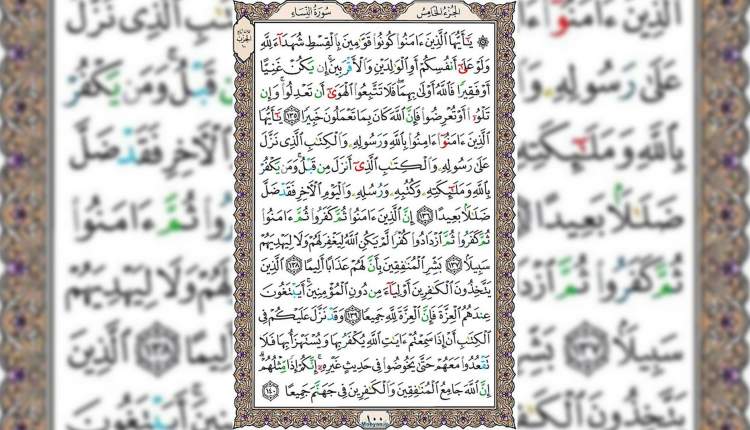 الجزء الخامس
سورة النساء
۞ يَٰٓأَيُّهَا ٱلَّذِينَ ءَامَنُوا۟ كُونُوا۟ قَوَّٰمِينَ بِٱلْقِسْطِ شُهَدَآءَ لِلَّهِ
وَلَوْ عَلَىٰٓ أَنفُسِكُمْ أَوِ ٱلْوَٰلِدَيْنِ وَٱلْأَقْرَبِينَ ۚ إِن يَكُنْ غَنِيًّا
أَوْ فَقِيرًا فَٱللَّهُ أَوْلَىٰ بِهِمَا ۖ فَلَا تَتَّبِعُوا۟ ٱلْهَوَىٰٓ أَن تَعْدِلُوا۟ ۚ وَإِن
تَلْوُۥٓا۟ أَوْ تُعْرِضُوا۟ فَإِنَّ ٱللَّهَ كَانَ بِمَا تَعْمَلُونَ خَبِيرًا ١٣٥ يَٰٓأَيُّهَا
ٱلَّذِينَ ءَامَنُوٓا۟ ءَامِنُوا۟ بِٱللَّهِ وَرَسُولِهِۦ وَٱلْكِتَٰبِ ٱلَّذِى نَزَّلَ
عَلَىٰ رَسُولِهِۦ وَٱلْكِتَٰبِ ٱلَّذِىٓ أَنزَلَ مِن قَبْلُ ۚ وَمَن يَكْفُرْ
بِٱللَّهِ وَمَلَٰٓئِكَتِهِۦ وَكُتُبِهِۦ وَرُسُلِهِۦ وَٱلْيَوْمِ ٱلْءَاخِرِ فَقَدْ ضَلَّ
ضَلَٰلًۢا بَعِيدًا ١٣٦ إِنَّ ٱلَّذِينَ ءَامَنُوا۟ ثُمَّ كَفَرُوا۟ ثُمَّ ءَامَنُوا۟
ثُمَّ كَفَرُوا۟ ثُمَّ ٱزْدَادُوا۟ كُفْرًا لَّمْ يَكُنِ ٱللَّهُ لِيَغْفِرَ لَهُمْ وَلَا لِيَهْدِيَهُمْ
سَبِيلًۢا ١٣٧ بَشِّرِ ٱلْمُنَٰفِقِينَ بِأَنَّ لَهُمْ عَذَابًا أَلِيمًا ١٣٨ ٱلَّذِينَ
يَتَّخِذُونَ ٱلْكَٰفِرِينَ أَوْلِيَآءَ مِن دُونِ ٱلْمُؤْمِنِينَ ۚ أَيَبْتَغُونَ
عِندَهُمُ ٱلْعِزَّةَ فَإِنَّ ٱلْعِزَّةَ لِلَّهِ جَمِيعًا ١٣٩ وَقَدْ نَزَّلَ عَلَيْكُمْ فِى
ٱلْكِتَٰبِ أَنْ إِذَا سَمِعْتُمْ ءَايَٰتِ ٱللَّهِ يُكْفَرُ بِهَا وَيُسْتَهْزَأُ بِهَا فَلَا
تَقْعُدُوا۟ مَعَهُمْ حَتَّىٰ يَخُوضُوا۟ فِى حَدِيثٍ غَيْرِهِۦٓ ۚ إِنَّكُمْ إِذًا مِّثْلُهُمْ ۗ
إِنَّ ٱللَّهَ جَامِعُ ٱلْمُنَٰفِقِينَ وَٱلْكَٰفِرِينَ فِى جَهَنَّمَ جَمِيعًا ١٤٠
١٠٠